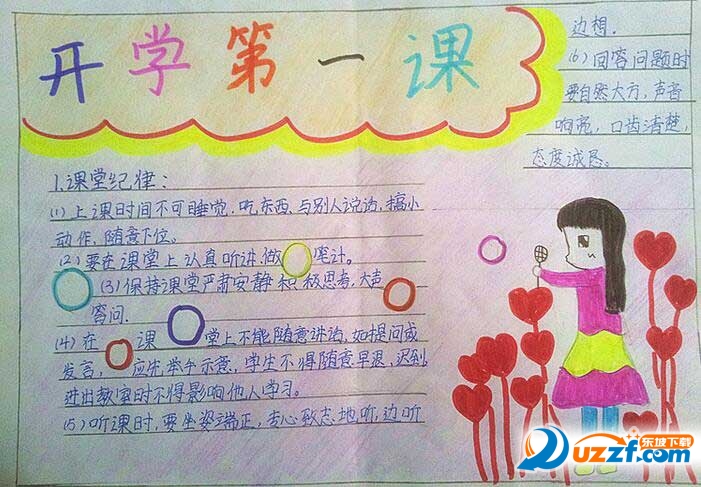 开学第一课
1.课堂纪律：
(1)上课时间不可睡觉.吃东西.与别人说话,搞小
动作,随意下位。
(2)要在课堂上认真听讲.做笔计。
(3)保持课堂严肃安静 积极思考.大声
答问.
(4)在 课 堂上不能随意讲话,如提问或
发言, 应先举手示意,学生不得随意早退,迟到
进出教室时不得影响他人学习。
(5)听课时,要坐姿端正,专心致志地听,边听
边想.
(6)回答问题时
要自然大方,声音
响亮,口齿清楚,
态度诚恳。
东坡下载
uzzf.com